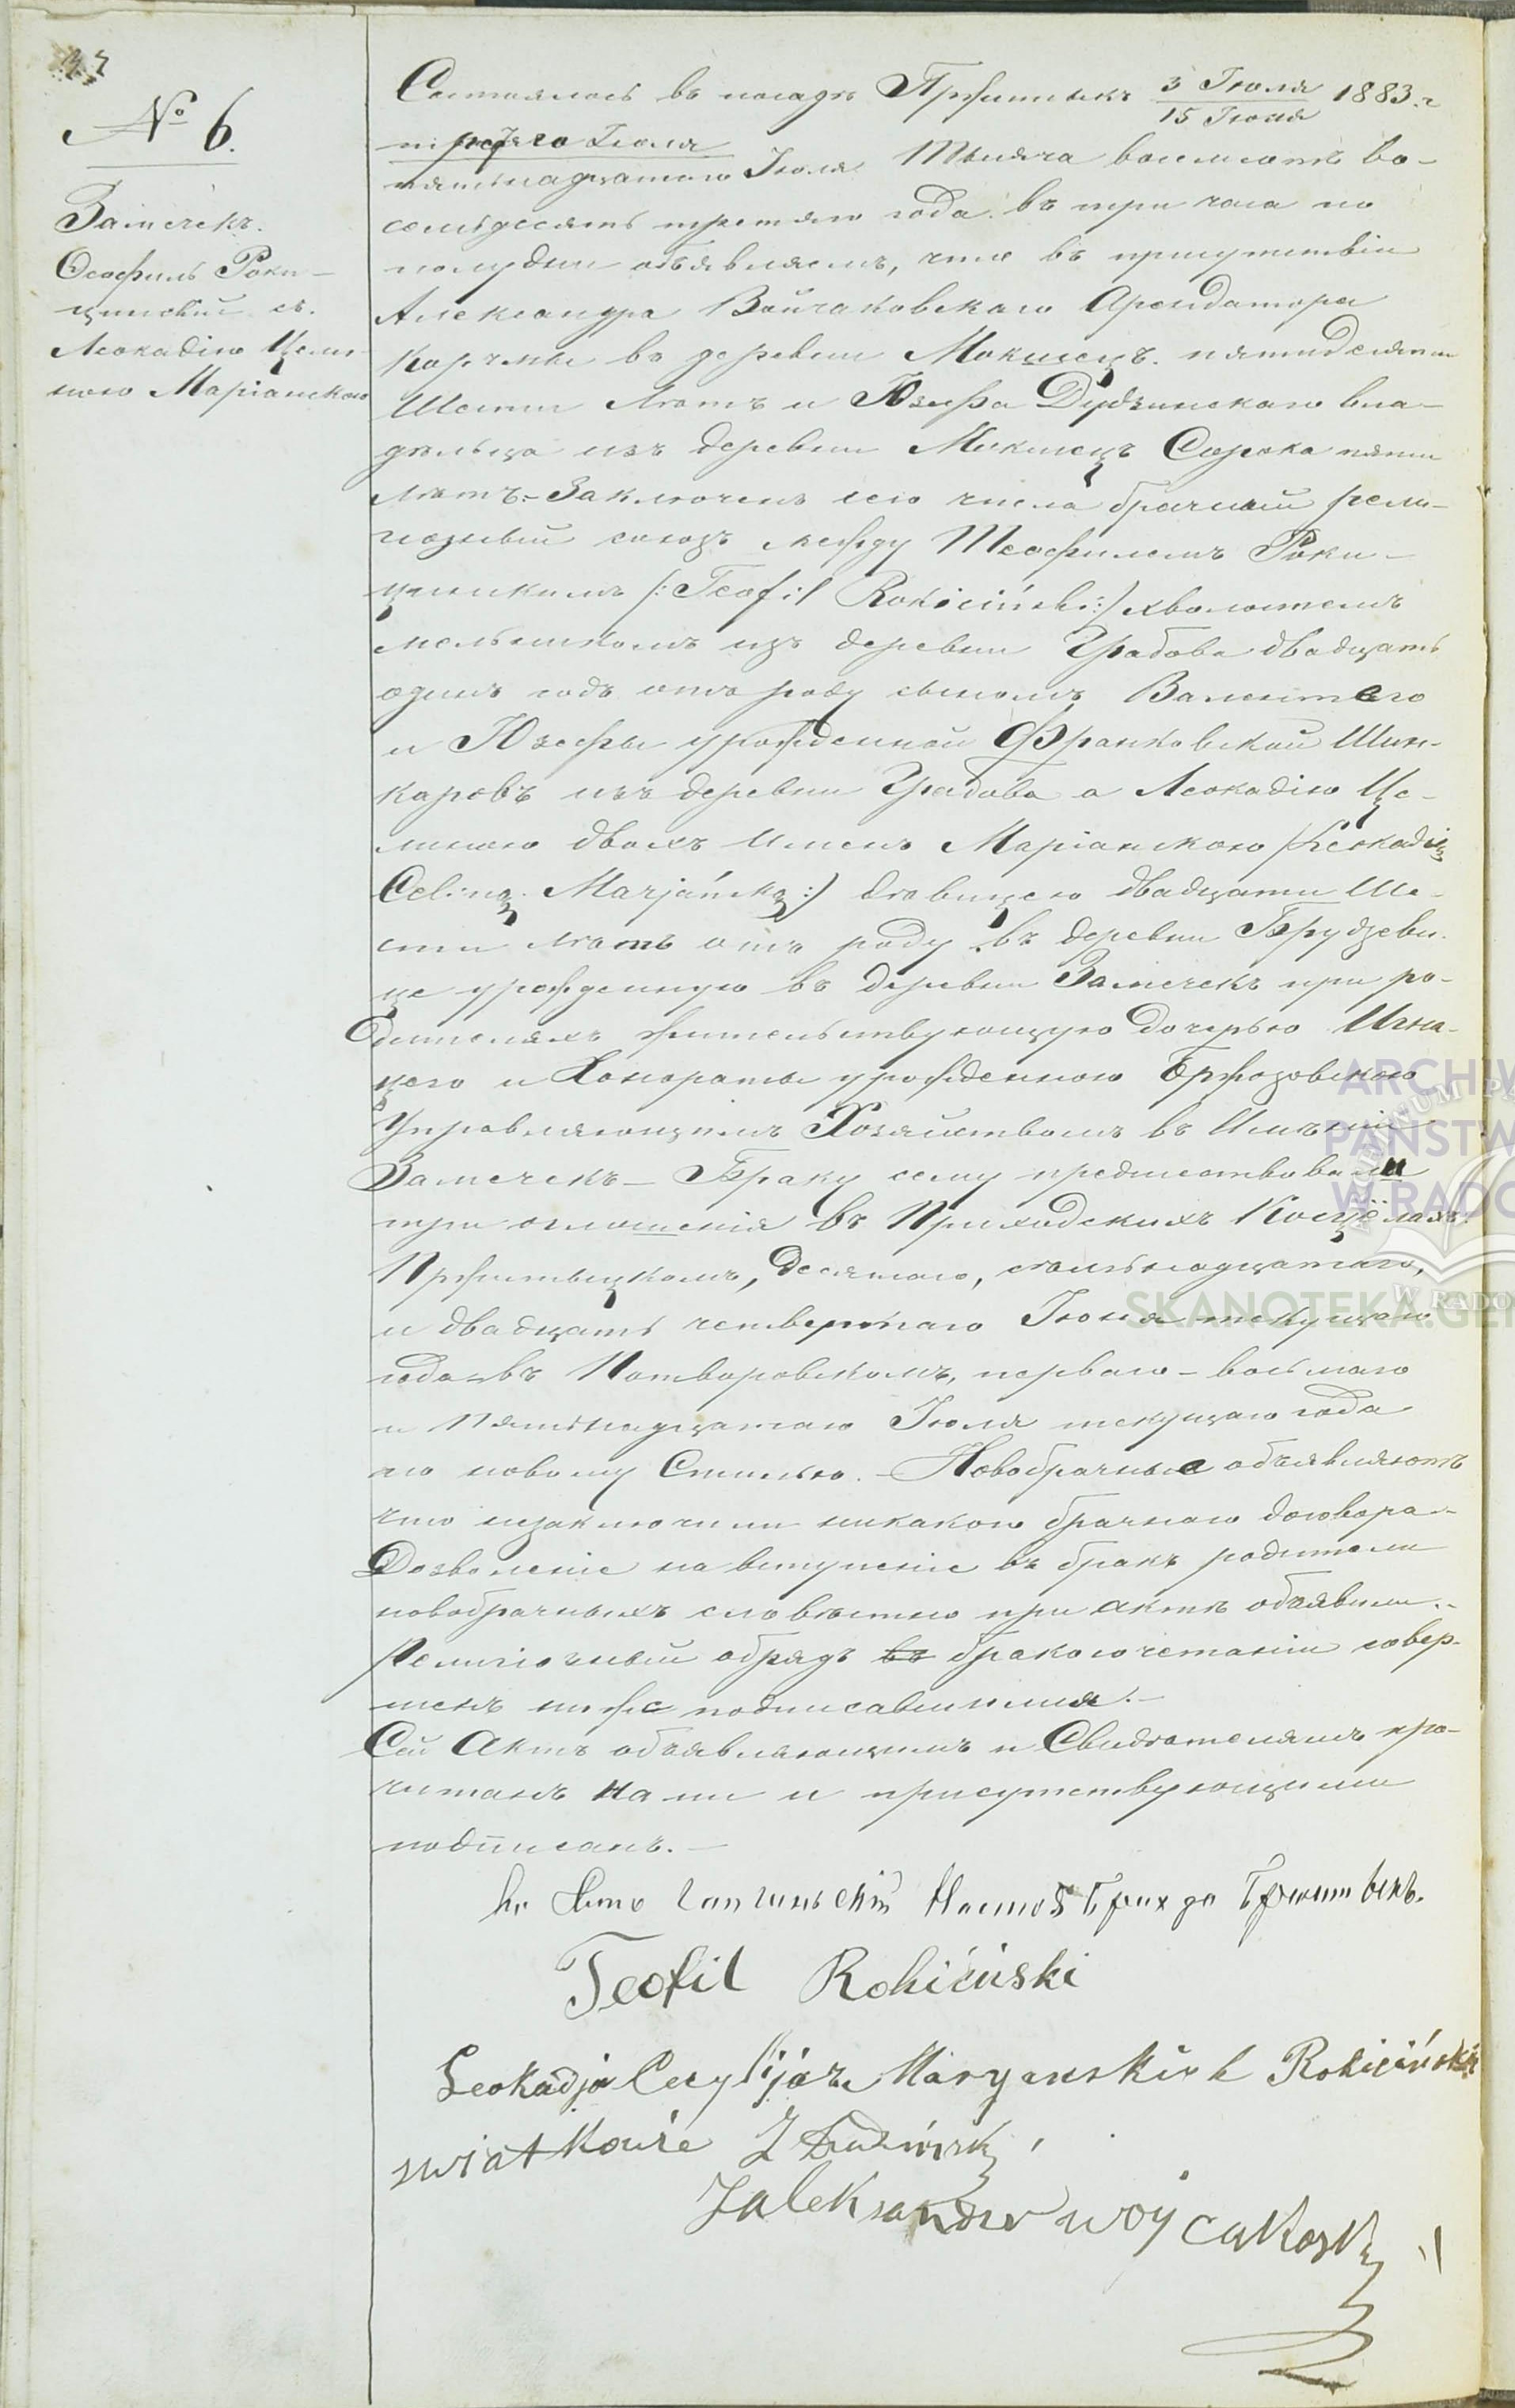 № 6.
Замечекъ.
Ѳеофиль Роки-
цинский съ.
Леокадіею Цели-
ною Маріанскою
Состоялось въ посадѣ Пржитыкѣ 3 Іюля / 15 Іюля 1883 г
третяго Іюля
пятьнадцатого Іюля Тысяча восемсотъ во-
семьдесятъ третяго года въ три часа по
полудни объявляемъ, что въ присутствіи
Александра Войчаковскаго Арендатора
Корчмы въ деревни Мокшецъ пятидесяти
Шести лѣтъ и Юзефа Дудзинскаго вла-
дѣльца изъ деревни Мокшецъ Сорока пяти
лѣтъ. Заключенъ сего числа брачный рели-
гіозный союзъ между Теофилемъ Роки-
цинскимъ (: Teofil Rokiciński :) холостымъ
мельникомъ изъ деревни Грабова двадцать
одинъ годъ отъ роду сыномъ Валентего
и Юзефы урожденной Франковской Шин-
каровъ изъ деревни Грабова а Леокадіею Це-
линою двохъ именъ Маріанскою (Leokadią
Celiną Marjańską :) дѣвицею двадцати Ше-
сти лѣтъ отъ роду въ деревни Брудзеви-
це урожденную въ деревни Замечекъ при ро-
дителяхъ жительствующую дочерью Игна-
цего и Хонораты урожденною Бржозовскою
Управляющимъ Хозяйствомъ въ Имѣніи
Замечекъ - Браку сему предшествовали
три оглошенія въ Приходскихъ Косцёлахъ
Пржитыцкомъ, десятаго, семьнадцатаго,
и двадцать четвертаго Іюня текущаго
года въ Потворовскомъ, перваго - восьмаго
и Пятьнадцатаго Іюля текущаго года
по новому Стилью. - Новобрачные объявляютъ
что незаключили никакого брачнаго договора -
Дозволеніе на вступленіе въ бракъ родители
новобрачныхъ словѣстно при актѣ объявили. -
Религіозный обрядъ въ бракосочетаніи совер-
шенъ ниже подписавшимся. -
Сей Актъ объявляющимъ и Свидѣтелямъ про-
читанъ нами и присутствующими
подписанъ. -
Teofil Rokiciński
Leokadja Cecylija z Maryanskich Rokicińska
swiatkowie J Dudzinski
Jaleksander woycakoski
ARCHIW
PAŃSTW
W RADO
SKANOTEKA.GEN